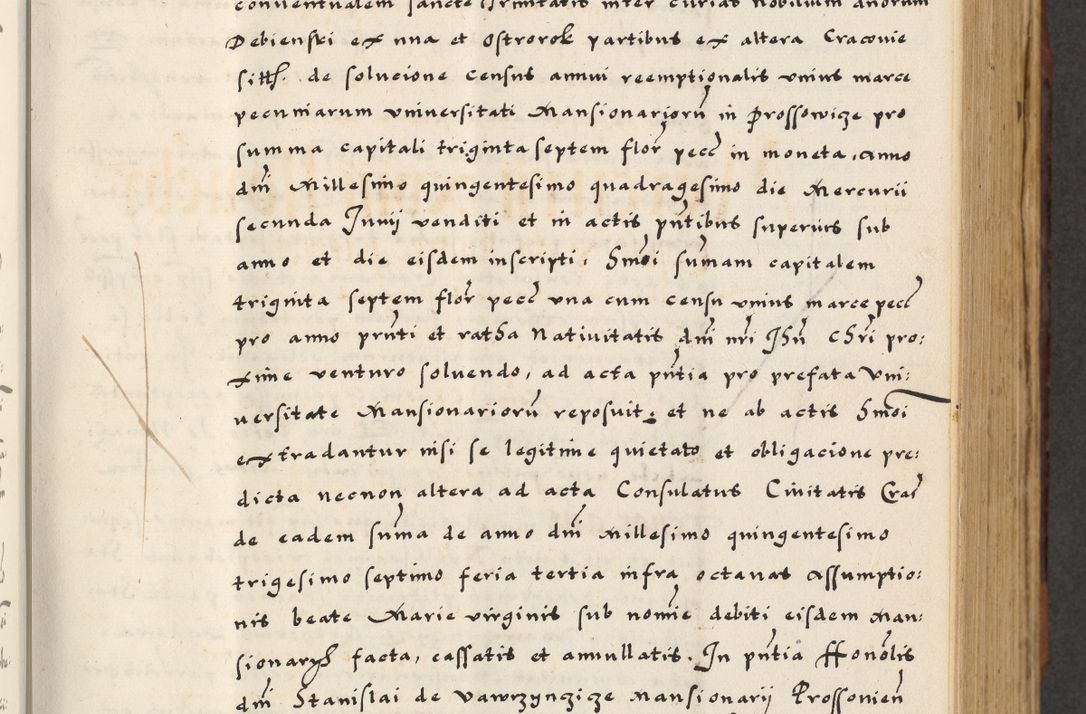 conventualem sancte Trinitatis inter curias nobilium duorum
Debienski ex una et Ostrorok partibus ex altera Cracovie
de solucione census annui reemptionalis unius marce
pecuniarum universitati Mansionariorũ in Prossowicze pro
summa capitali triginta septem flor pecc in moneta, anno
dnĩ Millesimo quingentesimo quadragesimo die Mercurii
secunda Junij venditi et in actis pñtibus superius sub
anno et die eisdem inscripti, Smõi sum̃am capitalem
triginta septem flor pecc una cum censu unius marce pecc
pro anno prñti et ratha Nativitatis dnĩ nrĩ Jhũ Chrĩ pro:
xime venturo solvendo, ad acta pñtia pro prefata Uni:
versitate Mansionariorũ reposuit: et ne ab actis Smõi
extradantur nisi se legitime quietato et obligacione pre:
dicta necnon altera ad acta Consulatus Civitatis Crac
de eadem sum̃a de anno dnĩ Millesimo quingentesimo
trigesimo septimo feria tertia infra octavas Assumptio:
nis beate Marie virginis sub nomĩe debiti eisdem Man:
sionarys facta, cassatis et annullatis. In pñtia Honõlis
dnĩ Stanislai de Vawrzynczicze Mansionarij Prossovieñ